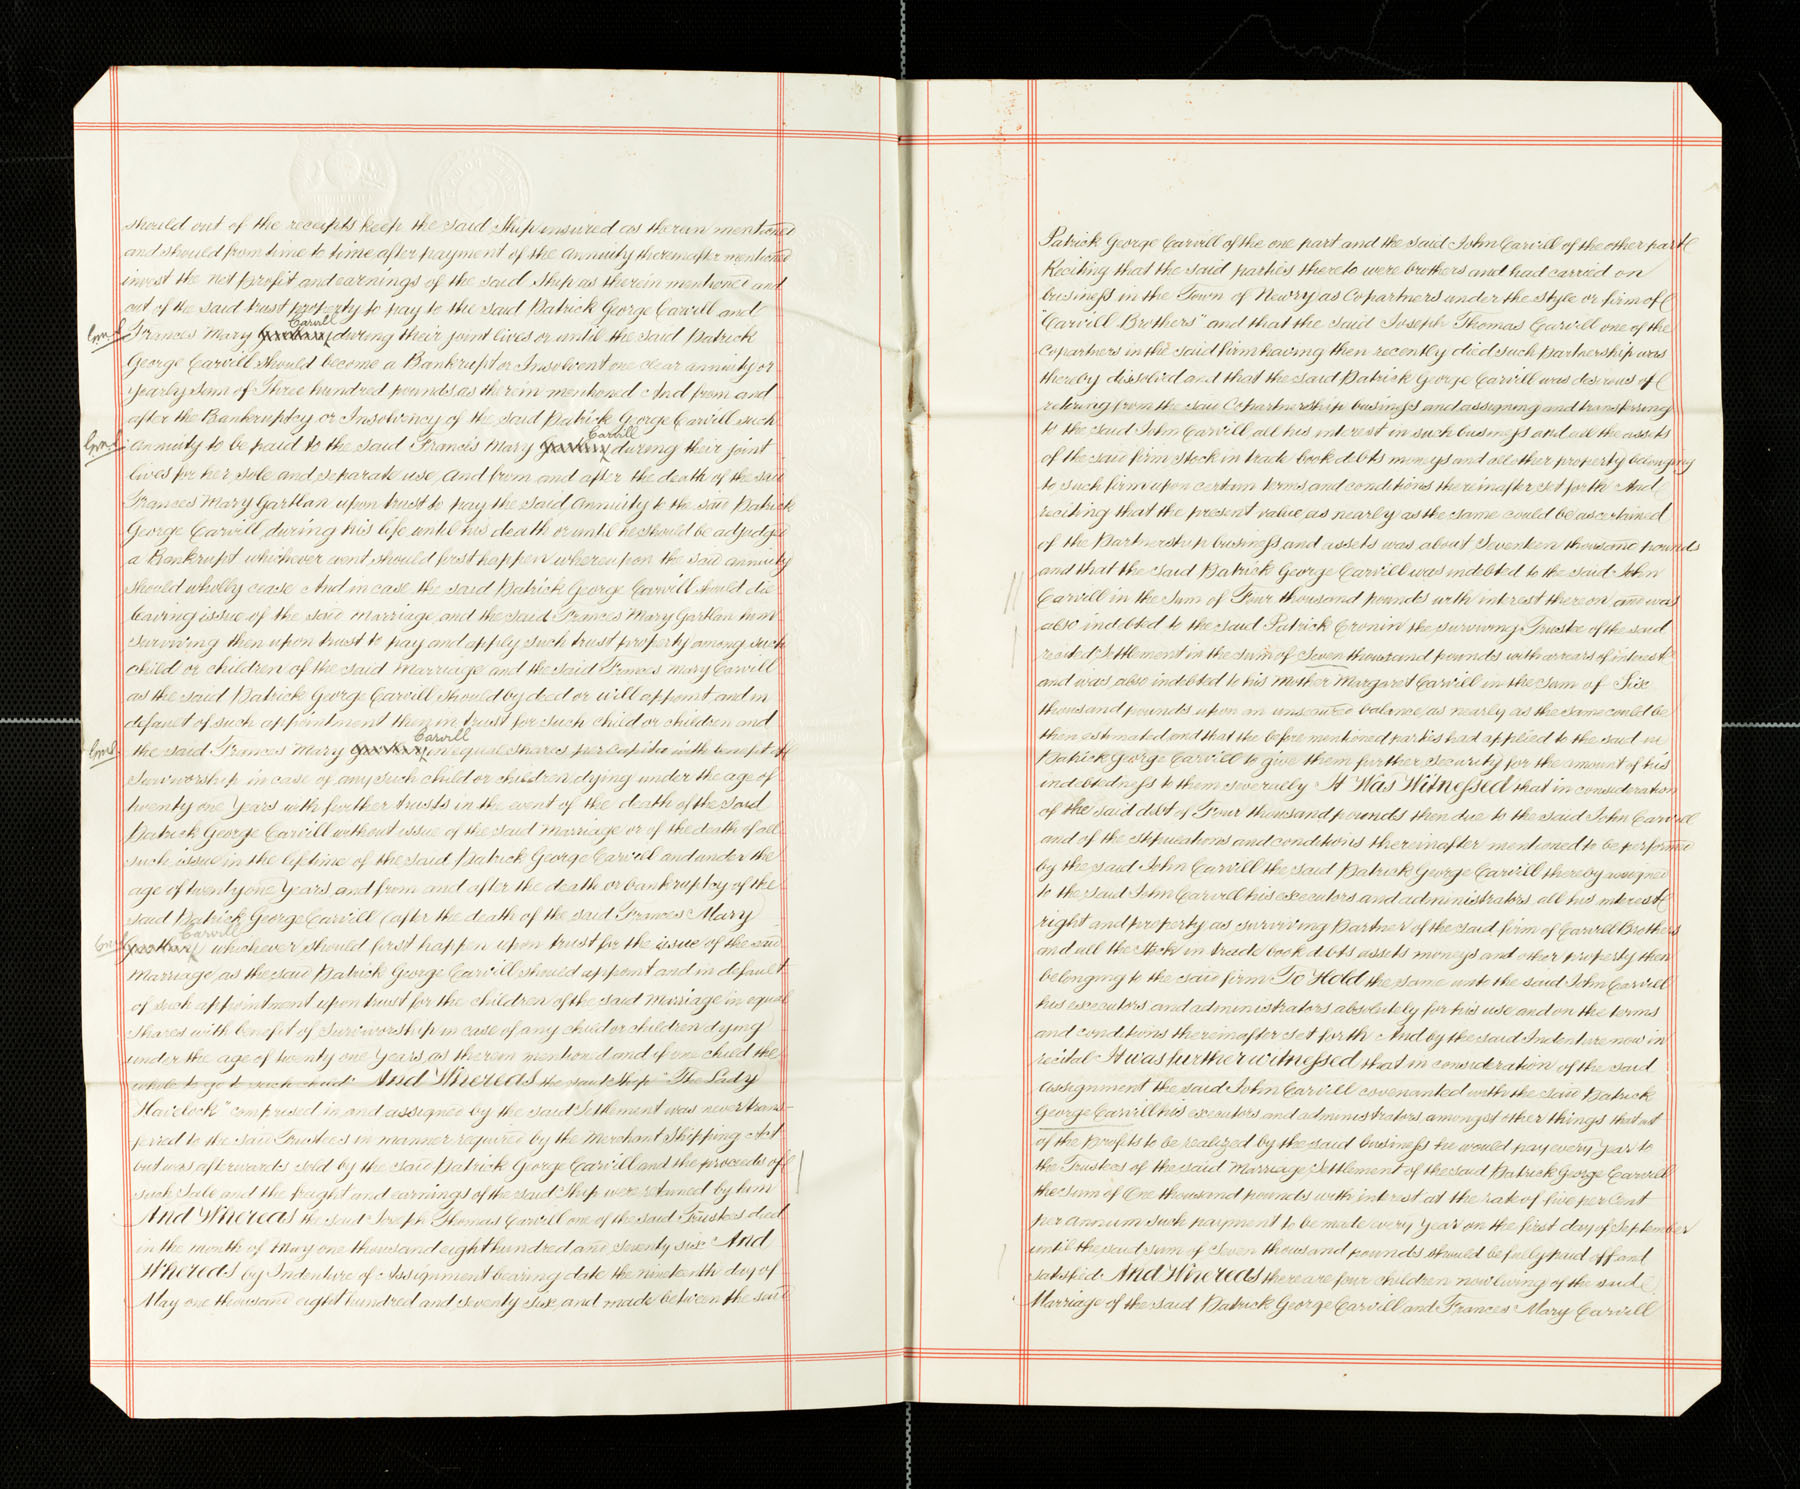 should out of the receipts keep the said Ship insured as therein mentioned
and should from time to time after payment of the Annuity thereinafter mentioned
invest the net profit and earnings of the said Ship as therein mentioned and
out of the said trust property to pay to the said Patrick George Carvill and
Carvill
Frances Mary during their joint lives or until the said Patrick
George Carvill should become a Bankrupt or Insolvent one clear annuity or
yearly sum of Three hundred pounds as therein mentioned And from and
after the Bankruptcy or Insolvency of the said Patrick George Carvill such
Carvill
annuity to be paid to the said Frances Mary during their joint
lives for her sole and separate use and from and after the death of the said
Frances Mary Gartlan upon trust to pay the said Annuity to the said Patrick
George Carvill during his life until his death or until he should be adjudged
a Bankrupt whichever event should first happen whereupon the said annuity
should wholly cease And in case the said Patrick George Carvill should die
leaving issue of the said marriage and the said Frances Mary Gartlan him
surviving then upon trust to pay and apply such trust property among such
child or children of the said Marriage and the said Frances Mary Carvill
as the said Patrick George Carvill should by deed or will appoint and in
default of such appointment then in trust for such child or children and
Carvill
the said Frances Mary in equal shares per capita with benefit of
Survivorship in case of any such child or children dying under the age of
twenty one Years with further trusts in the event of the death of the said
Patrick George Carvill without issue of the said Marriage or of the death of all
such issue in the lifetime of the said Patrick George Carvill and under the
age of twenty one Years and from and after the death or bankruptcy of the
said Patrick George Carvill (after the death of the said Frances Mary
Carvill
Gartlan) whichever should first happen upon trust for the issue of the said
Marriage as the said Patrick George Carvill should appoint and in default
of such appointment upon trust for the children of the said Marriage in equal
shares with benefit of Survivorship in case of any child or children dying
under the age of twenty one Years as therein mentioned and if one child the
whole to go to such child And Whereas the said Ship "The Lady
Havelock" comprised in and assigned by the said Settlement was never trans-
ferred to the said Trustees in manner required by the Merchant Shipping Act
but was afterwards sold by the said Patrick George Carvill and the proceeds of
such Sale and the freight and earnings of the said Ship were retained by him
And Whereas the said Joseph Thomas Carvill one of the said Trustees died
in the month of May one thousand eight hundred and seventy six And
Whereas by Indenture of Assignment bearing date the nineteenth day of
May one thousand eight hundred and seventy six and made between the said
Patrick George Carvill of the one part and the said John Carvill of the other part
Reciting that the said parties thereto were brothers and had carried on
business in the Town of Newry as Copartners under the style or firm of
"Carvill Brothers" and that the said Joseph Thomas Carvill one of the
Copartners in the said firm having then recently died such partnership was
thereby dissolved and that the said Patrick George Carvill was desirous of
retiring from the said Copartnership business and assigning and transferring
to the said John Carvill all his interest in such business and all the assets
of the said firm stock in trade book debts moneys and all other property belonging
to such firm upon certain terms and conditions thereinafter set forth And
reciting that the present value as nearly as the same could be ascertained
of the Partnership business and assets was about Seventeen thousand pounds
and that the said Patrick George Carvill was indebted to the said John
Carvill in the sum of Four thousand pounds with interest thereon and was
also indebted to the said Patrick Cronin the surviving Trustee of the said
recited Settlement in the sum of Seven thousand pounds with arrears of interest
and was also indebted to his Mother Margaret Carvill in the sum of Six
thousand pounds upon an unsecured balance as nearly as the same could be
then estimated and that the before mentioned parties had applied to the said
Patrick George Carvill to give them further security for the amount of his
indebtedness to them severally It Was Witnessed that in consideration
of the said debt of Four thousand pounds then due to the said John Carvill
and of the stipulations and conditions thereinafter mentioned to be performed
by the said John Carvill the said Patrick George Carvill thereby assigned
to the said John Carvill his executors and administrators all his interest
right and property as surviving Partner of the said firm of Carvill Brothers
and all the stock in trade book debts assets moneys and other property then
belonging to the said firm To Hold the same unto the said John Carvill
his executors and administrators absolutely for his use and on the terms
and conditions thereinafter set forth And by the said Indenture now in
recital It was further witnessed that in consideration of the said
assignment the said John Carvill covenanted with the said Patrick
George Carvill his executors and administrators amongst other things that out
of the Profits to be realized by the said business he would pay every year to
the Trustees of the said Marriage Settlement of the said Patrick George Carvill
the sum of One thousand pounds with interest at the rate of five per Cent
per annum such payment to be made every Year on the first day of September
until the said sum of Seven thousand pounds should be fully paid off and
satisfied And Whereas there are four children now living of the said
Marriage of the said Patrick George Carvill and Frances Mary Carvill